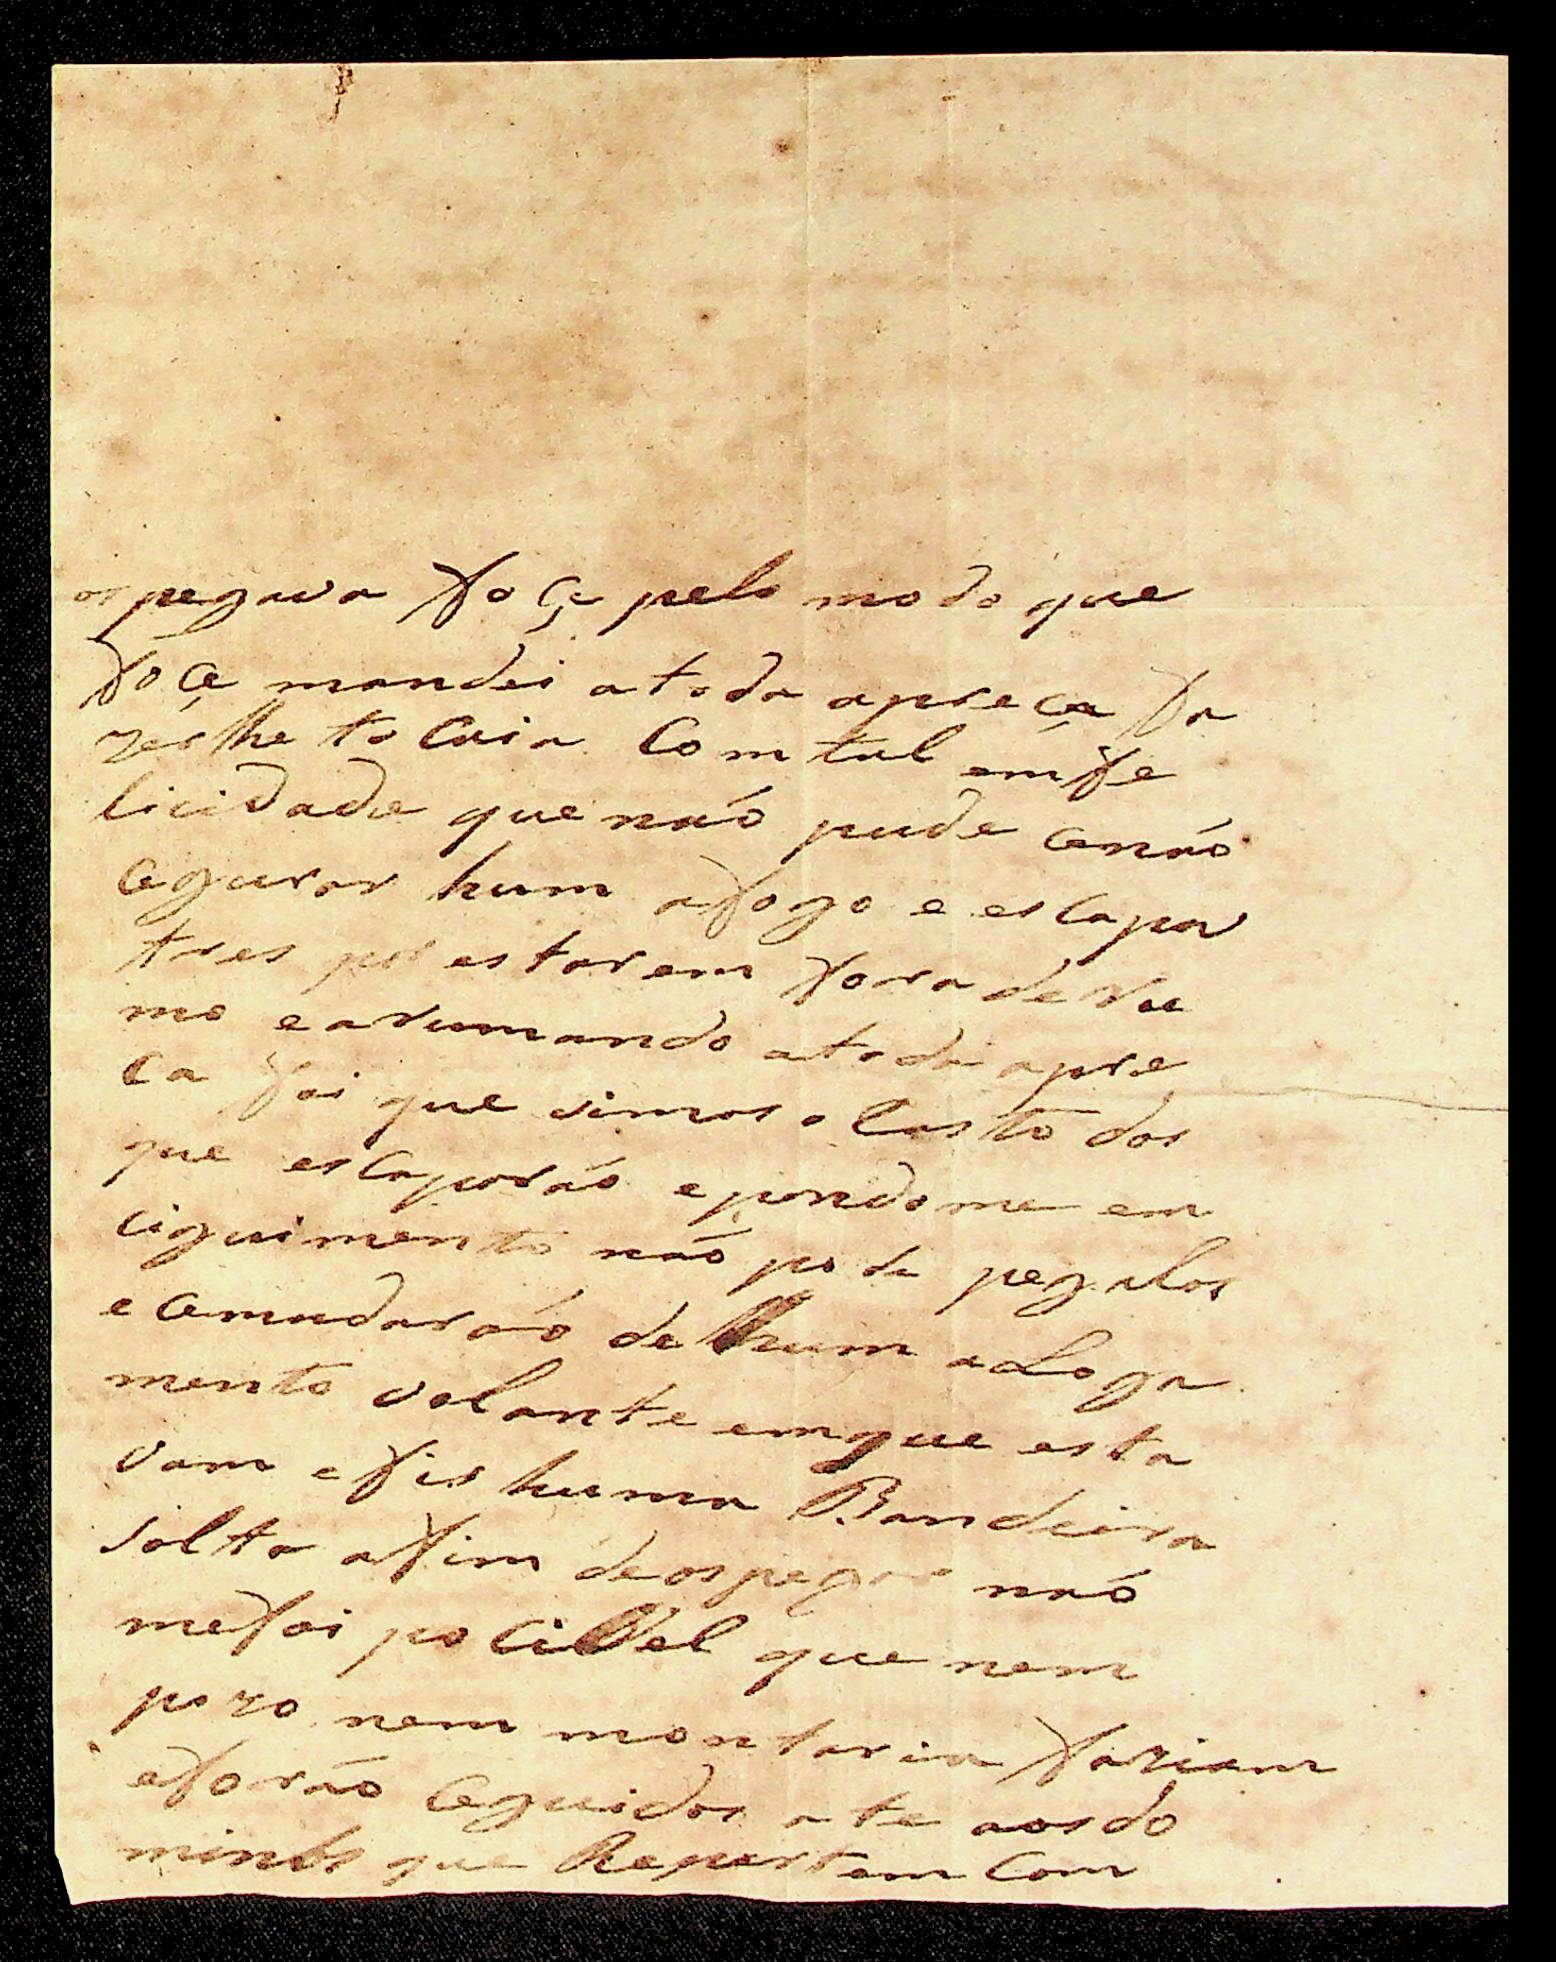 os pegava foçe pelo modo que
foçe mandei a toda apreça fa
zerlhe to Caia Com tal emfe
licidade que naó pude cenaó
cegurar hum afogo e escapar
tres por estarem fora de Ru
mo e arumando a toda apre
ca foi que vimos o Casto dos
que escaparáo e pondo me em
ciguimento naó pode pegalos
e cemudaraó de hum aLoga
mento volante emque esta
vam e fis huma Bandeira
solta afim deospegar naó
mefoi pociVel que nem
pozo nem montaria faziam
eforáo Ceguidos a te aosdo
minios que Repartem Com